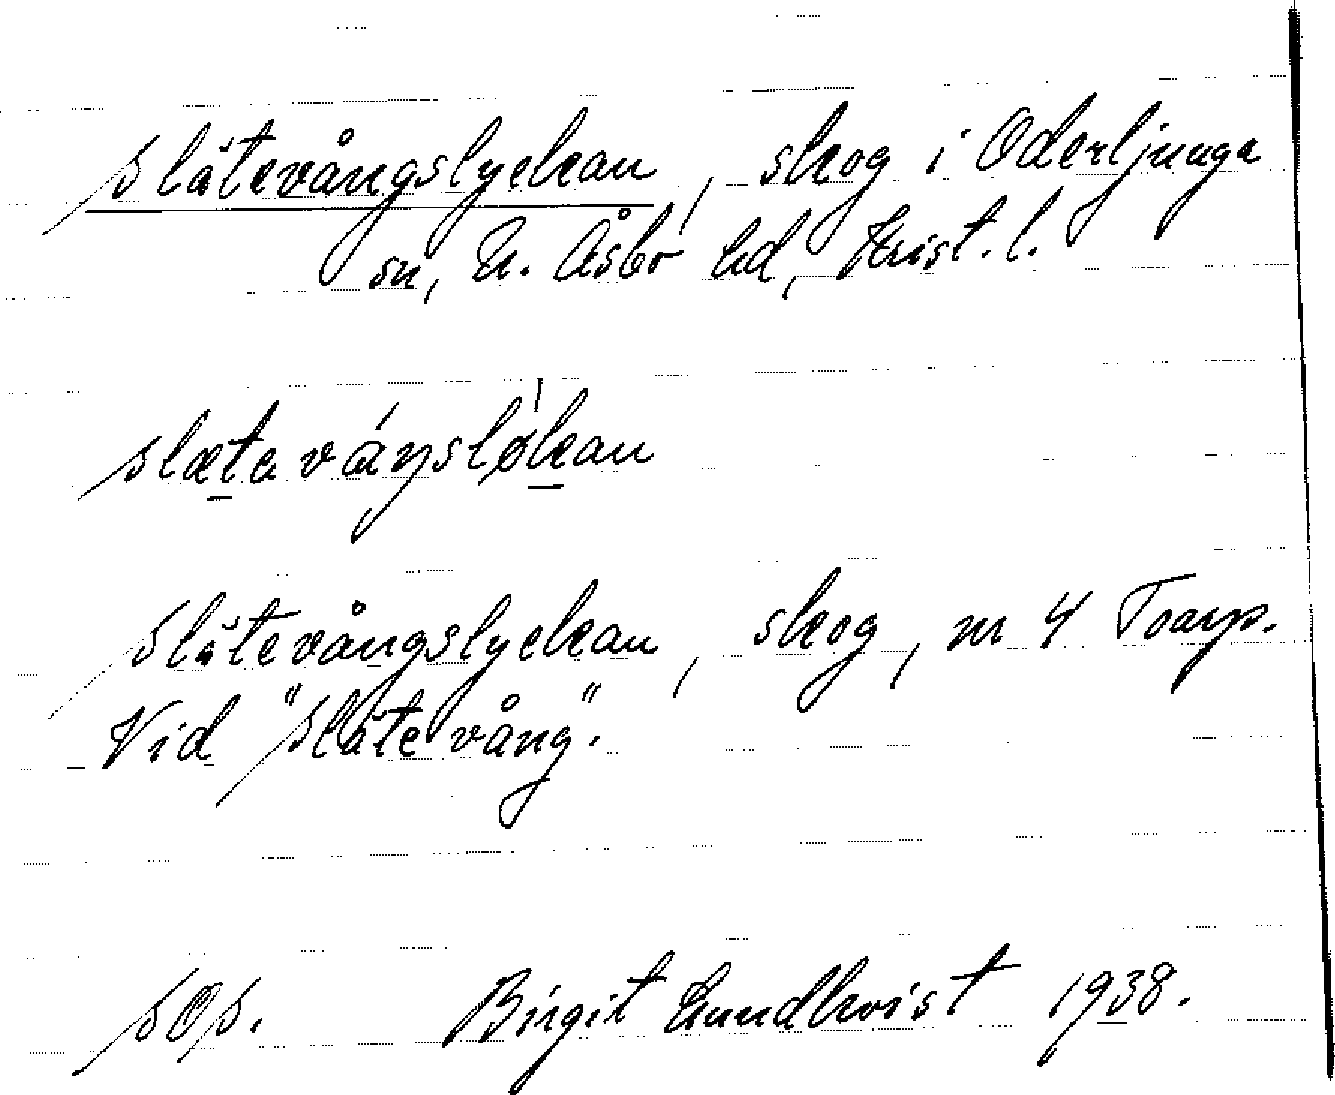 Slätevångslyckan, skog i Oderljunga
sn, N. Åsbo hd, Krist. l.
slætaváŋslỏkan
Slätevångslyckan, skog, nr 4 Toarp.
Vid "Släte vång".
SOp. Birgit Lundkvist 1938.